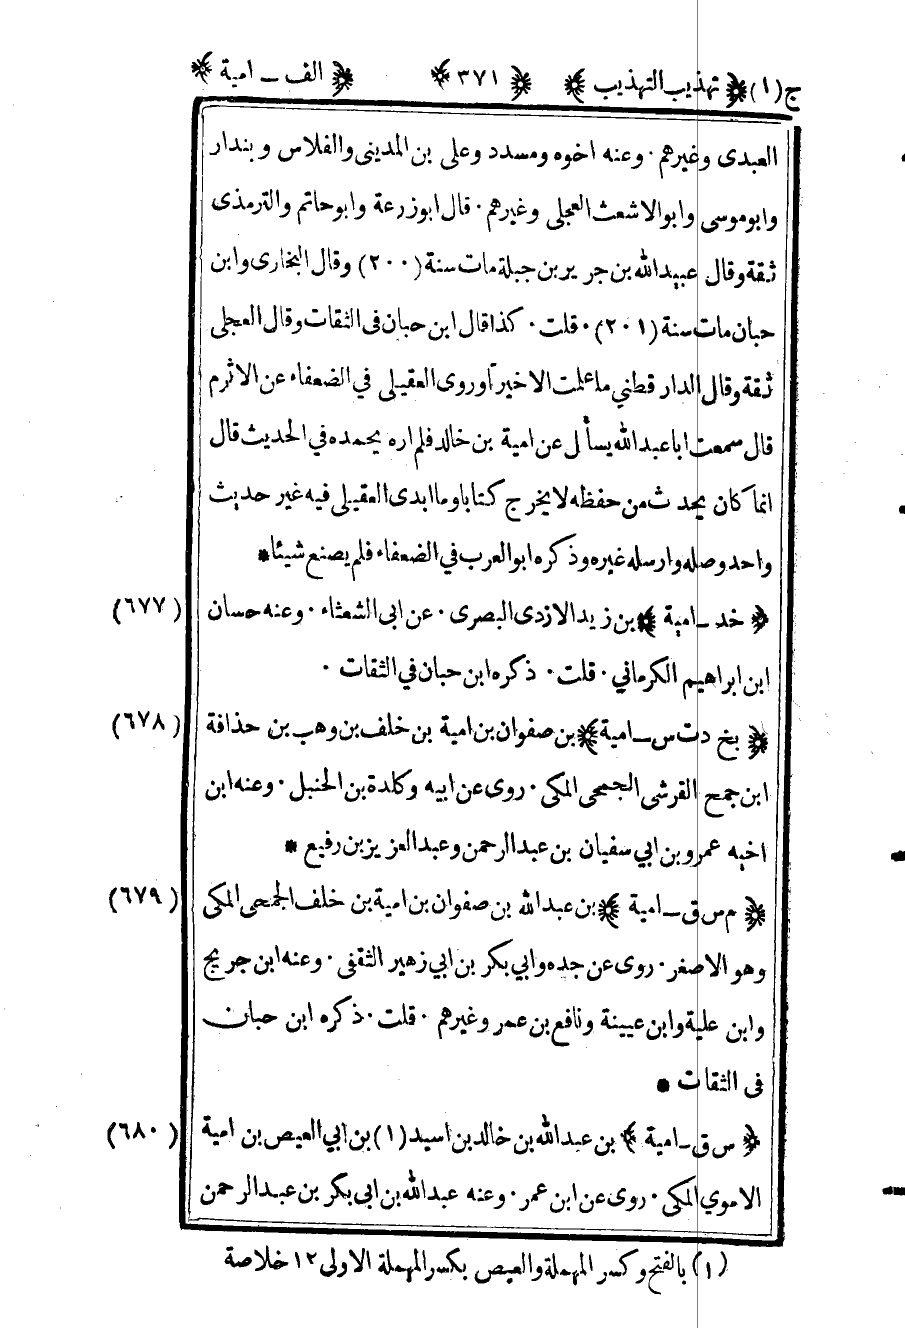 ج (١) ﴿ تهذيب التهذيب ﴾ ﴿ ٣٧١ ﴾ ﴿ الف ـ امية ﴾
العبدى وغيرهم ۰ وعنه اخوه ومسدد وعلى بن المدينى والفلاس و بندار
وابوموسى وابوالاشعث العجلى وغيرهم ۰ قال ابوزرعة وابوحاتم والترمذى
ثقة وقال عبيدالله بن جرير بن جبلة مات سنة (٢٠٠) وقال البخارى وابن
حبان مات سنة (٢٠١) ۰ قلت ۰ كذا قال ابن حبان فى الثقات وقال العجلى
ثقة وقال الدار قطني ما علمت الا خيرا وروى العقيلى في الضعفاء عن الاثرم
قال سمعت ابا عبدالله يسأل عن امية بن خالد فلم اره يحمده في الحديث قال
انما كان يحدث من حفظه لا يخرج كتابا وما ابدى العقيلى فيه غير حديث
واحد وصله وارسله غيره وذكره ابو العرب في الضعفاء فلم يصنع شيئا *
﴿ خد ـ امية ﴾ بن زيد الازدى البصرى ۰ عن ابى الشعثاء ۰ وعنه حسان (٦٧٧)
ابن ابراهيم الكرماني ۰ قلت ۰ ذكره ابن حبان في الثقات ۰
﴿ بخ دت س ـ امية ﴾ بن صفوان بن امية بن خلف بن وهب بن حذافة (٦٧٨)
ابن جمح القرشى الجمحى المكى ۰ روى عن ابيه وكلدة بن الحنبل ۰ وعنه ابن
اخيه عمرو بن ابي سفيان بن عبدالرحمن وعبدالعزيز بن رفيع *
﴿ م س ق ـ امية ﴾ بن عبدالله بن صفوان بن امية بن خلف الجمحى المكى (٦٧٩)
وهو الاصغر ۰ روى عن جده وابي بكر بن ابي زهير الثقفى ۰ وعنه ابن جريج
وابن علية وابن عيينة ونافع بن عمر وغيرهم ۰ قلت ۰ ذكره ابن حبان
فى الثقات *
﴿ س ق ـ امية ﴾ بن عبدالله بن خالد بن اسيد (١) بن ابي العيص بن امية (٦٨٠)
الاموي المكى ۰ روى عن ابن عمر ۰ وعنه عبدالله بن ابى بكر بن عبدالرحمن
(١) بالفتح وكسر المهملة والعيص بكسر المهملة الاولى ١٢ خلاصة